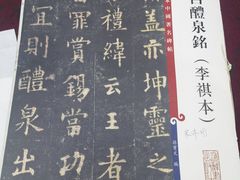 醴泉銘（李祺本）
中國著名碑帖
孫寶文 編
蓋亦坤靈之
禮緯云王者
罪賞錫當功
宜則醴泉出